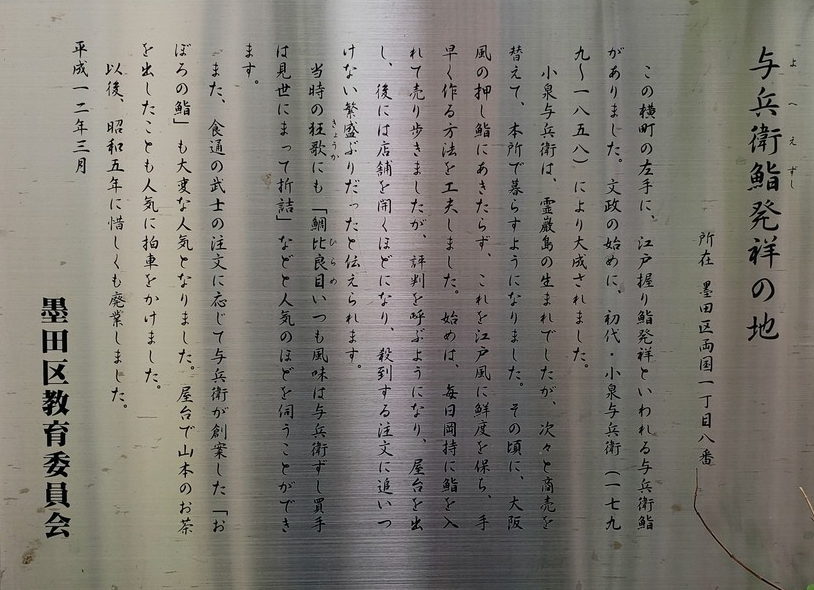 与兵衛鮨発祥の地
よへえずし
所在 墨田区両国一丁目八番
この横町の左手に、江戸握り鮨発祥といわれる与兵衛鮨
がありました。文政の始めに、初代・小泉与兵衛（一七九
九〜一八五八）により大成されました。
小泉与兵衛は、霊巌島の生まれでしたが、次々と商売を
替えて、本所で暮らすようになりました。その頃に、大阪
風の押し鮨にあきたらず、これを江戸風に鮮度を保ち、手
早く作る方法を工夫しました。始めは、毎日岡持に鮨を入
れて売り歩きましたが、評判を呼ぶようになり、屋台を出
し、後には店舗を開くほどになり、殺到する注文に追いつ
けない繁盛ぶりだったと伝えられます。
当時の狂歌にも「鯛比良目いつも風味は与兵衛ずし買手
きょうか
ひらめ
は見世にまって折詰」などと人気のほどを伺うことができ
ます。
また、食通の武士の注文に応じて与兵衛が創案した「お
ぼろの鮨」も大変な人気となりました。屋台で山本のお茶
を出したことも人気に拍車をかけました。
以後、昭和五年に惜しくも廃業しました。
平成一二年三月
墨田区教育委員会